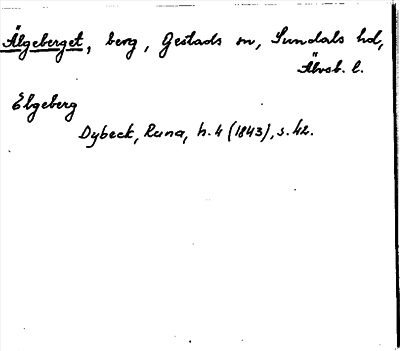 Älgeberget, berg, Gestads sn, Sundals hd,
Älvsb. l.
Elgeberg
Dybeck, Runa, h. 4 (1843), s. 42.